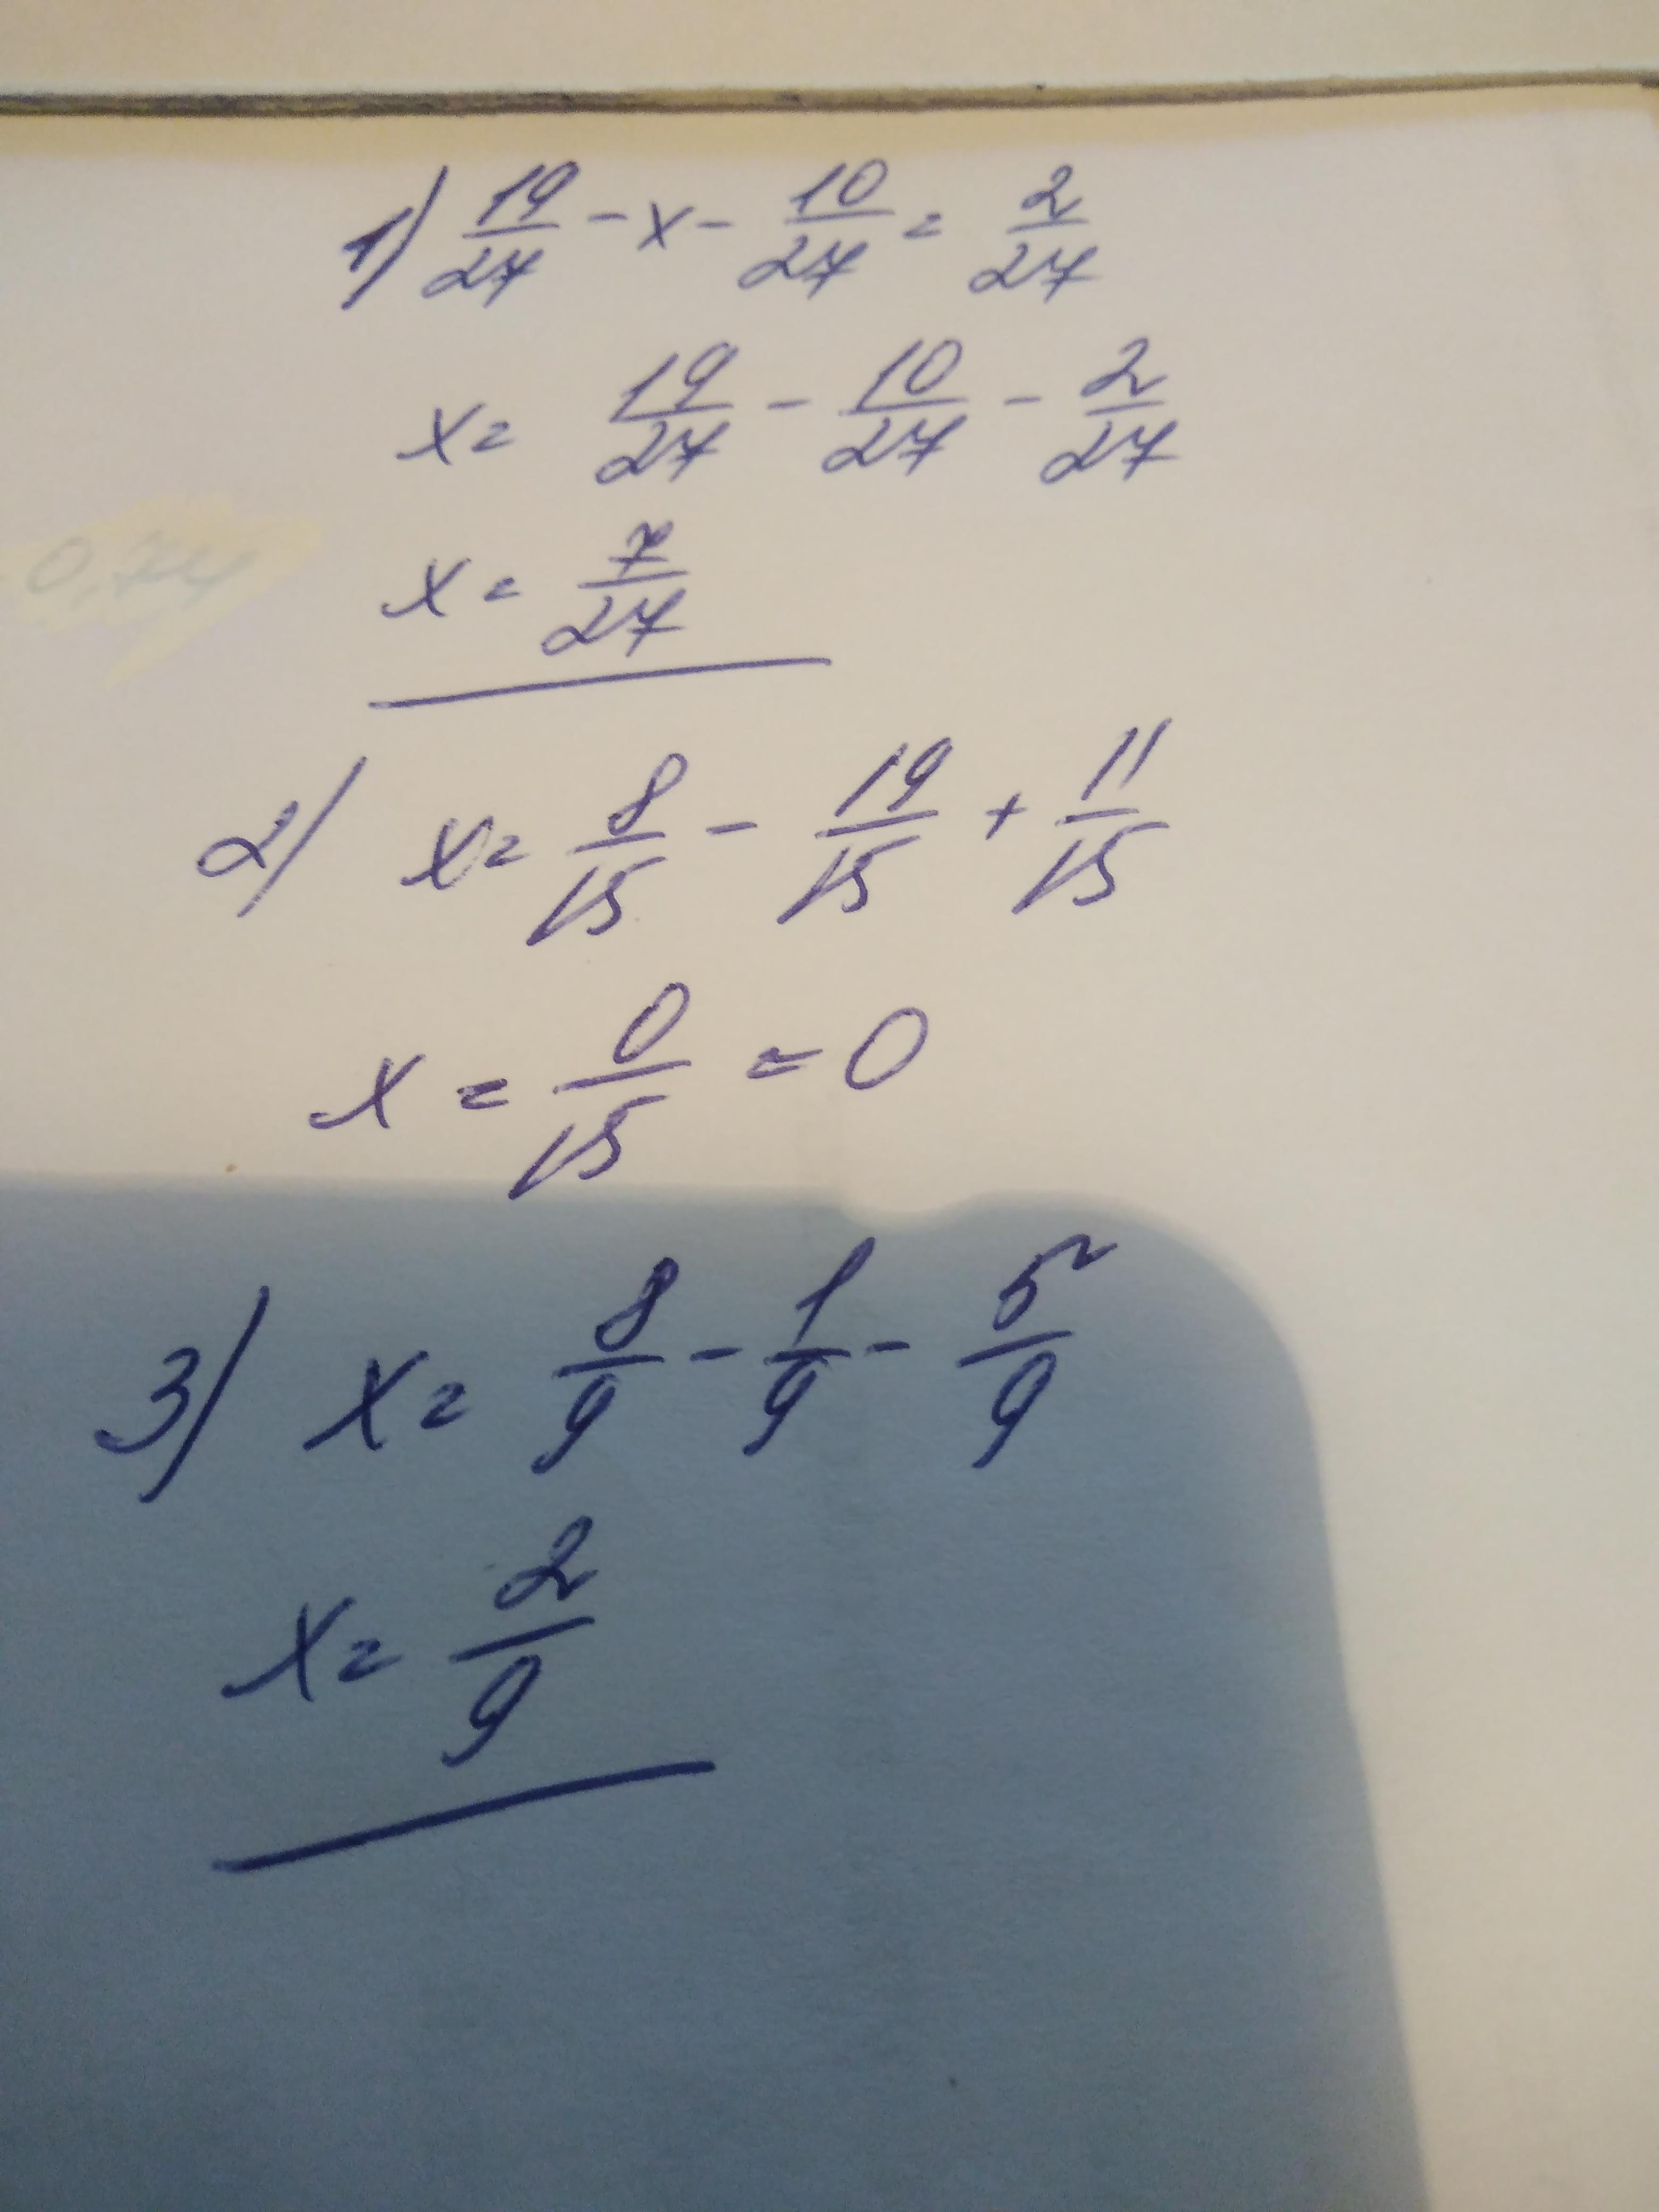 1) 19/27 - x - 10/27 = 2/27
x = 19/27 - 10/27 - 2/27
x = 7/27
0,74
2) x = 8/15 - 19/15 + 11/15
x = 0/15 = 0
3) x = 8/9 - 1/9 - 5/9
x = 2/9